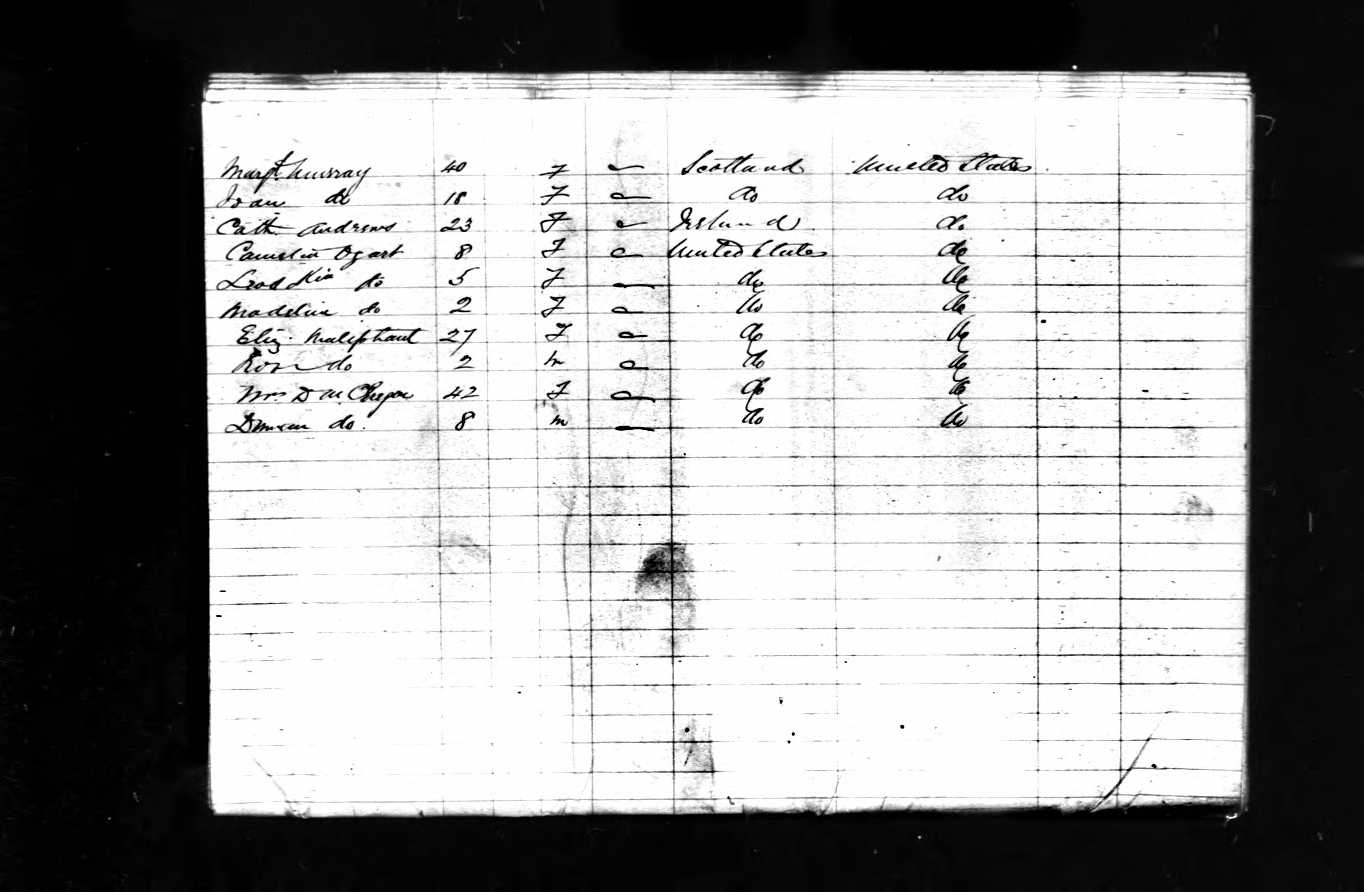 Margt Murray 40 F — Scotland United States
Joan do 18 F — do do
Cath Andrews 23 F — Ireland do
8 F — United States do
do 5 F — do do
Madeline do 2 F — do do
Eliz. Maliphant 27 F — do do
Ross do 2 m — do do
Mrs D 42 F — do do
Duncan do. 8 m — do do